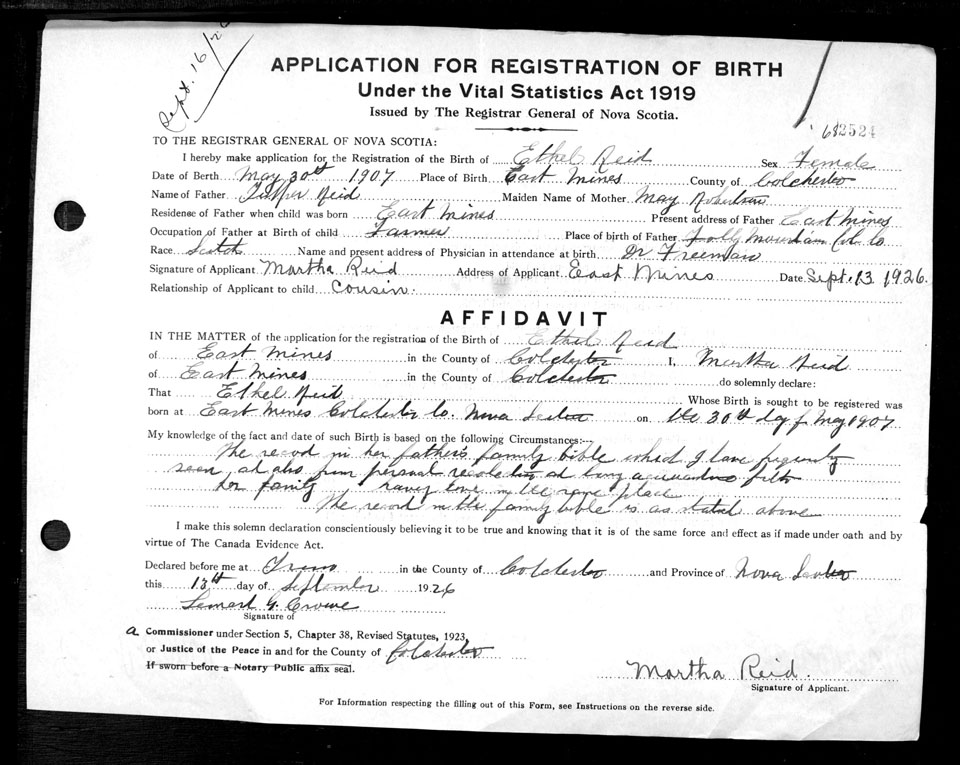 Sept. 16/26
APPLICATION FOR REGISTRATION OF BIRTH
Under the Vital Statistics Act 1919
Issued by The Registrar General of Nova Scotia.
612524
TO THE REGISTRAR GENERAL OF NOVA SCOTIA:
I hereby make application for the Registration of the Birth of Ethel Reid Sex Female
Date of Birth May 30th 1907 Place of Birth East Mines County of Colchester
Name of Father Reid Maiden Name of Mother May Robertson
Residense of Father when child was born East Mines Present address of Father East Mines
Occupation of Father at Birth of child Farmer Place of birth of Father Folly Mountain Col. Co.
Race Scotch Name and present address of Physician in attendance at birth Dr Freeman
Signature of Applicant Martha Reid Address of Applicant East Mines Date Sept. 13 1926.
Relationship of Applicant to child cousin.
AFFIDAVIT
IN THE MATTER of the application for the registration of the Birth of Ethel Reid
of East Mines in the County of Colchester I, Martha Reid
of East Mines in the County of Colchester do solemnly declare:
That Ethel Reid Whose Birth is sought to be registered was
born at East Mines Colchester Co. Nova Scotia on the 30th day of May 1907
My knowledge of the fact and date of such Birth is based on the following Circumstances:--
The record in her father's family bible which I have frequently
seen, and also from personal recollection and being acquainted with
her family having lived in the same place
The record in the family bible is as stated above
I make this solemn declaration conscientiously believing it to be true and knowing that it is of the same force and effect as if made under oath and by
virtue of The Canada Evidence Act.
Declared before me at Truro in the County of Colchester and Province of Nova Scotia
this 13th day of September 1926
G. Crowe
Signature of
a Commissioner under Section 5, Chapter 38, Revised Statutes, 1923,
or Justice of the Peace in and for the County of Colchester
If sworn before a Notary Public affix seal.
Martha Reid.
Signature of Applicant.
For Information respecting the filling out of this Form, see Instructions on the reverse side.